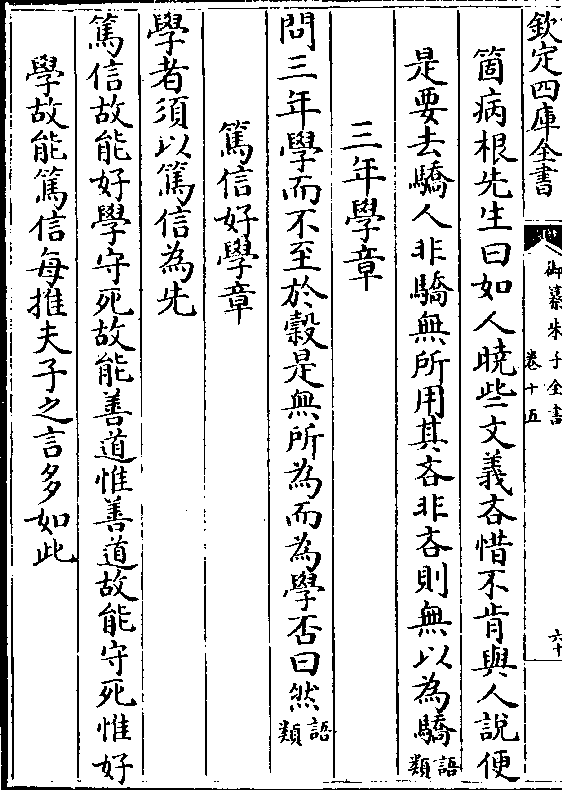 欽定四庫全書
御纂朱子全書
卷十五
六十
箇病根先生曰如人曉些文義吝惜不肯與人說便
是要去驕人非驕無所用其吝非吝則無以為驕語類
三年學章
問三年學而不至於穀是無所為而為學否曰然語類
篤信好學章
學者須以篤信為先
篤信故能好學守死故能善道惟善道故能守死惟好
學故能篤信每推夫子之言多如此